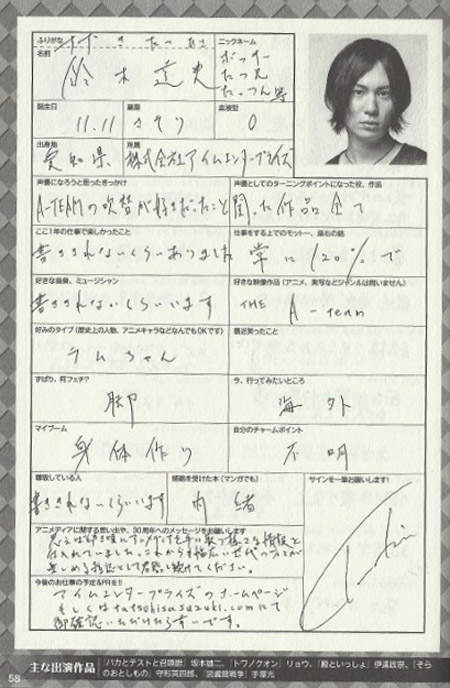 ふりがな すずき たつひさ
ニックネーム
名前
鈴木達央
ボッすー
たつ兄
たっつん等
誕生日 星座 血液型
11.11 さそり O
出身地 所属
愛知県 株式会社アイムエンタープライズ
声優になろうと思ったきっかけ
A-TEAMの吹替が好きだったこと
声優としてのターニングポイントになった役、作品
関った作品全て
ここ1年の仕事で楽しかったこと
書ききれないくらいありました
仕事をする上でのモットー、座右の銘
常に120%で
好きな音楽、ミュージシャン
書ききれないくらいいます
好きな映像作品(アニメ、実写などジャンルは問いません)
THE A-team
好みのタイプ(歴史上の人物、アニメキャラなどなんでもOKです)
ラムちゃん
最近笑ったこと
ずばり、何フェチ?
脚
今、行ってみたいところ
海外
マイブーム
身体作り
自分のチャームポイント
不明
尊敬している人
書ききれないくらいいます
感銘を受けた本(マンガでも)
内緒
サインを一筆お願いします!
アニメディアに関する思い出や、30周年へのメッセージをお願いします
楽しめる雑誌として君臨し続けてください。
今後のお仕事の予定&PRを!!
アイムエンタープライズのホームページ
もしくはtatsuhisasuzuki.comにて
御確認いただけたら幸いです。
主な出演作品 『バカとテストと召喚獣』坂本雄二、『トワノクオン』リョウ、『殿といっしょ』伊達政宗、『そら
のおとしもの』守形英四郎、『図書館戦争』手塚光
58